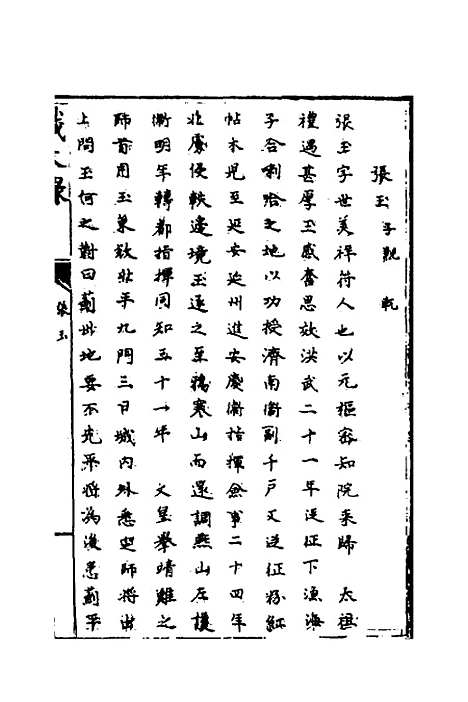 張玉 子輗 軏
張玉字世美祥符人也以元樞密知院來歸 太祖
禮遇甚厚玉感奮思效洪武二十一年從征下漁海
子合喇哈之地以功授濟南衛副千戶又從征粉紅
帖木兒至延安延州進安慶衛指揮僉事二十四年
北虜侵軼邊境玉逐之至鴉寒山而還調燕山左護
衛明年轉都指揮同知五十一年 文皇舉靖難之
師首用玉策效壯乎九門三日城內外悉定師將出
上問玉何之對曰薊州地要不先平將為後患薊平
張玉